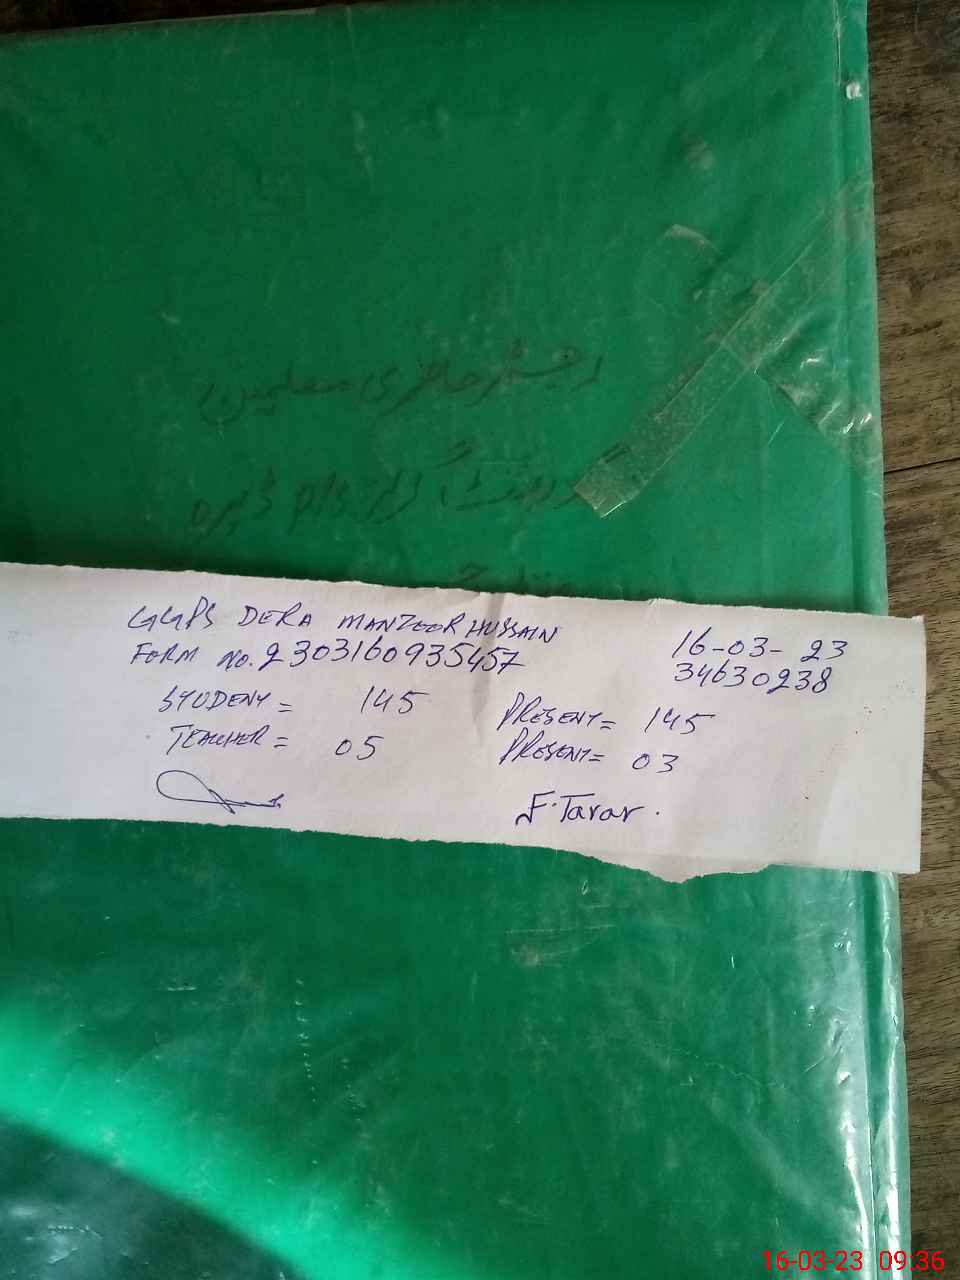 رجسٹر حاضری معلمین
گورنمنٹ گرلز ڈیرہ
GGPS DERA MANZOOR HUSSAIN
16-03-23
FORM NO. 2303160935457
34630238
STUDENT = 145 PRESENT= 145
TEACHER = 05 PRESENT= 03
F. Tarar.
16-03-23 09:36